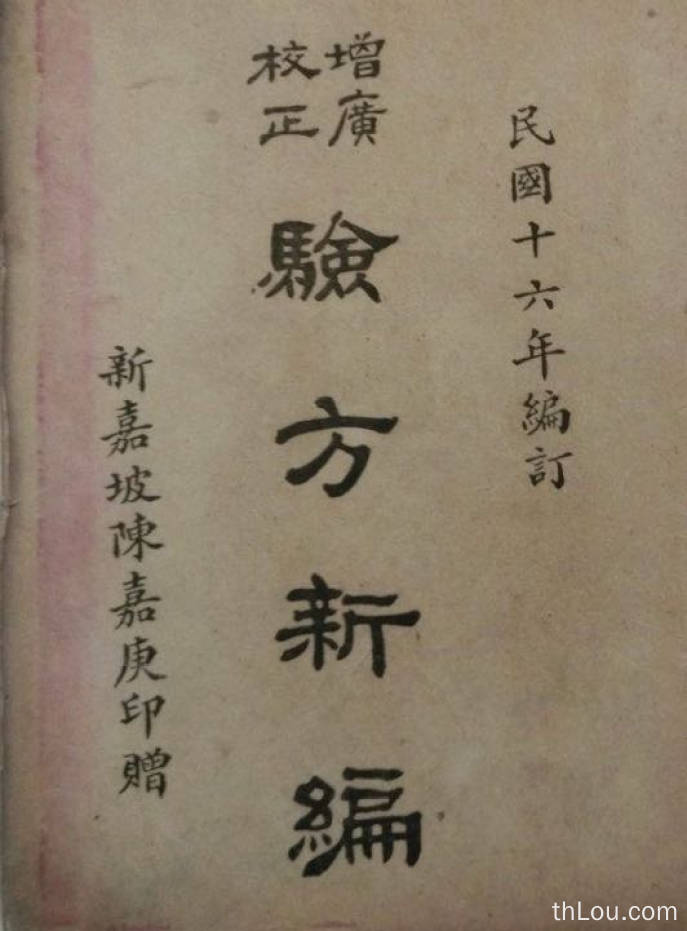 民國十六年編訂
增廣
校正
驗方新編
新嘉坡陳嘉庚印贈
thLou.com